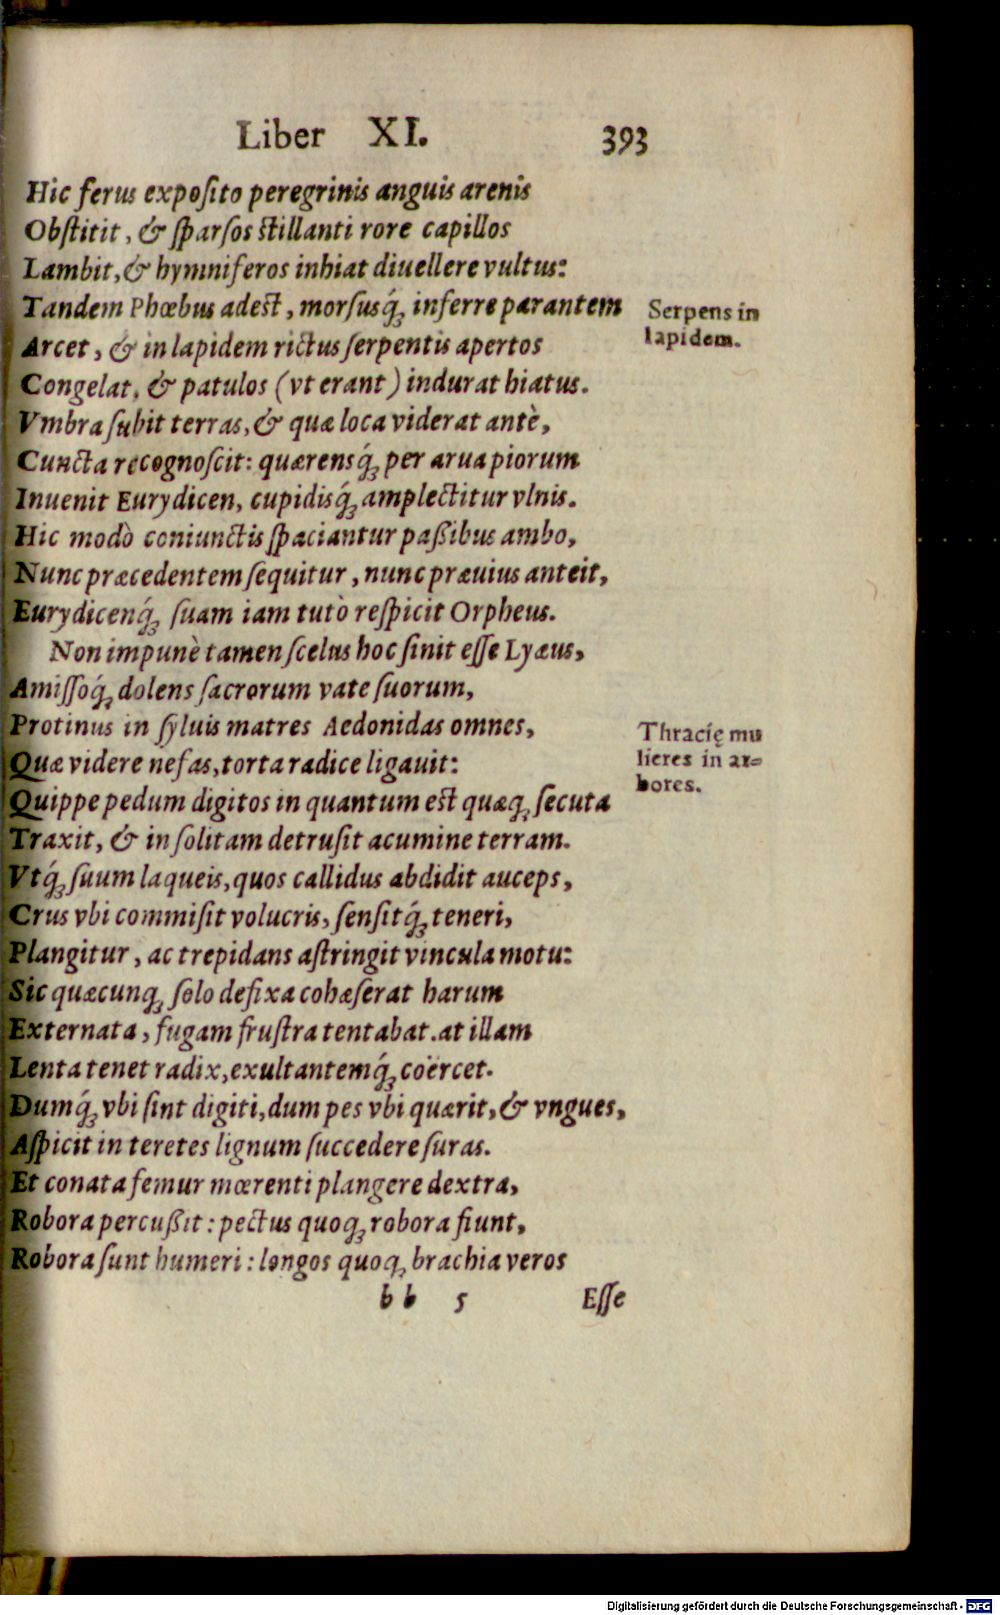 Liber XI. 393
Hic ferus exposito peregrinis anguis arenis
Obstitit, & sparsos stillanti rore capillos
Lambit, & hymniferos inhiat diuellere vultus:
Tandem Phœbus adest, morsusq́; inferre parantem
Serpens in
lapidem.
Arcet, & in lapidem rictus serpentis apertos
Congelat, & patulos (vt erant) indurat hiatus.
Vmbra subit terras, & quæ loca viderat antè,
Cuncta recognoscit: quærensq́; per arua piorum
Inuenit Eurydicen, cupidisq́; amplectitur vlnis.
Hic modò coniunctis spaciantur paßibus ambo,
Nunc præcedentem sequitur, nunc præuius anteit,
Eurydicenq́; suam iam tutò respicit Orpheus.
Non impunè tamen scelus hoc sinit esse Lyæus,
Amissoq́; dolens sacrorum vate suorum,
Protinus in syluis matres Aedonidas omnes,
Thracię mu
lieres in ar=
bores.
Quæ videre nefas, torta radice ligauit:
Quippe pedum digitos in quantum est quæq; secuta
Traxit, & in solitam detrusit acumine terram.
Vtq́; suum laqueis, quos callidus abdidit auceps,
Crus vbi commisit volucris, sensitq́; teneri,
Plangitur, ac trepidans astringit vincula motu:
Sic quæcunq; solo defixa cohæserat harum
Externata, fugam frustra tentabat. at illam
Lenta tenet radix, exultantemq́; coërcet.
Dumq́; vbi sint digiti, dum pes vbi quærit, & vngues,
Aspicit in teretes lignum succedere suras.
Et conata femur mœrenti plangere dextra,
Robora percußit: pectus quoq; robora fiunt,
Robora sunt humeri: longos quoq; brachia veros
bb 5 Esse
Digitalisierung gefördert durch die Deutsche Forschungsgemeinschaft - DFG